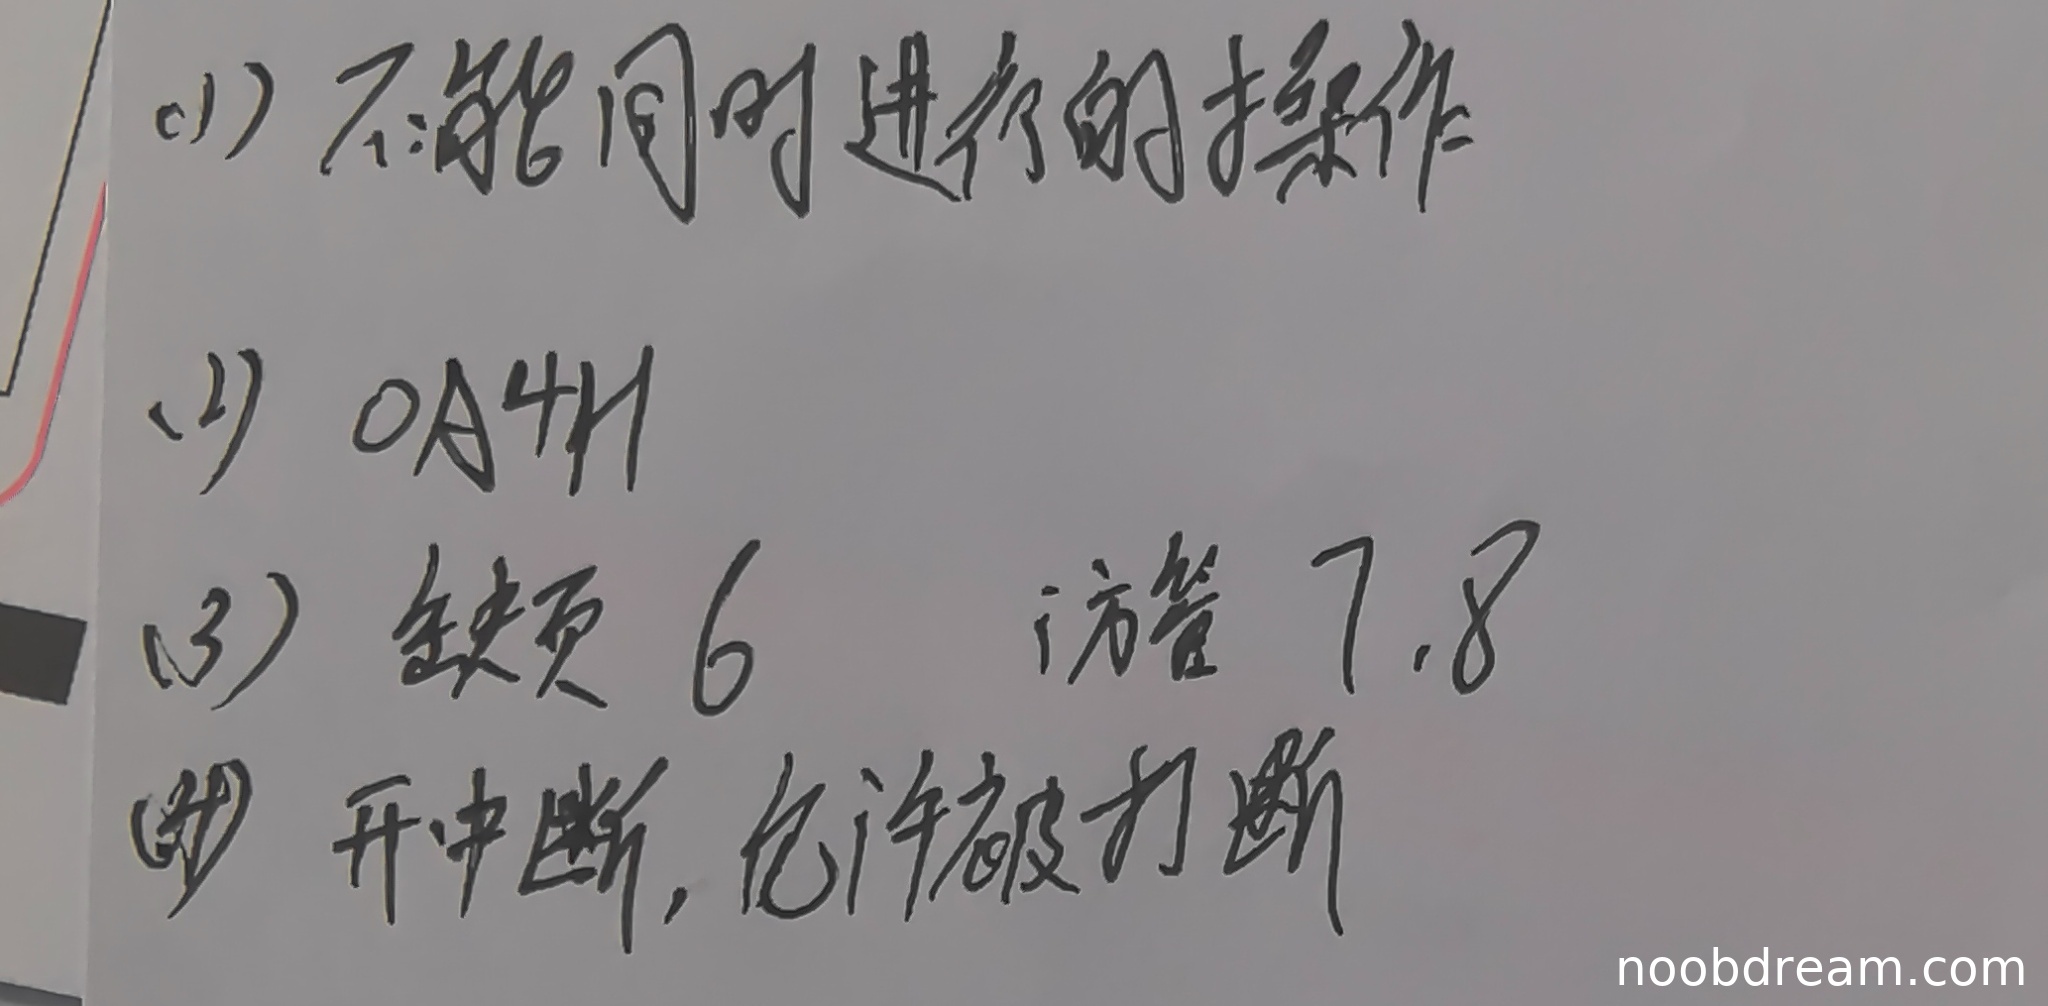 (1) 不能同时进行的操作
(2) 0A4H
(3) 缺页 6 访管 7.8
(4) 开中断,允许被打断
noobdream.com